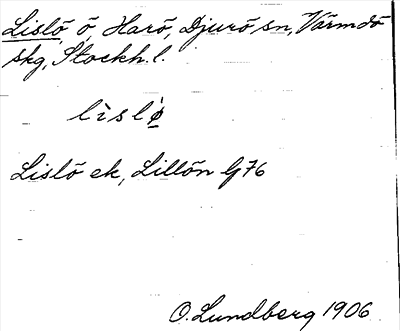 Lislö, ö, Harö, Djurö sn, Värmdö
skg, Stockh. l.
lìslǿ
Lislö ek, Lillön G76
O. Lundberg 1906